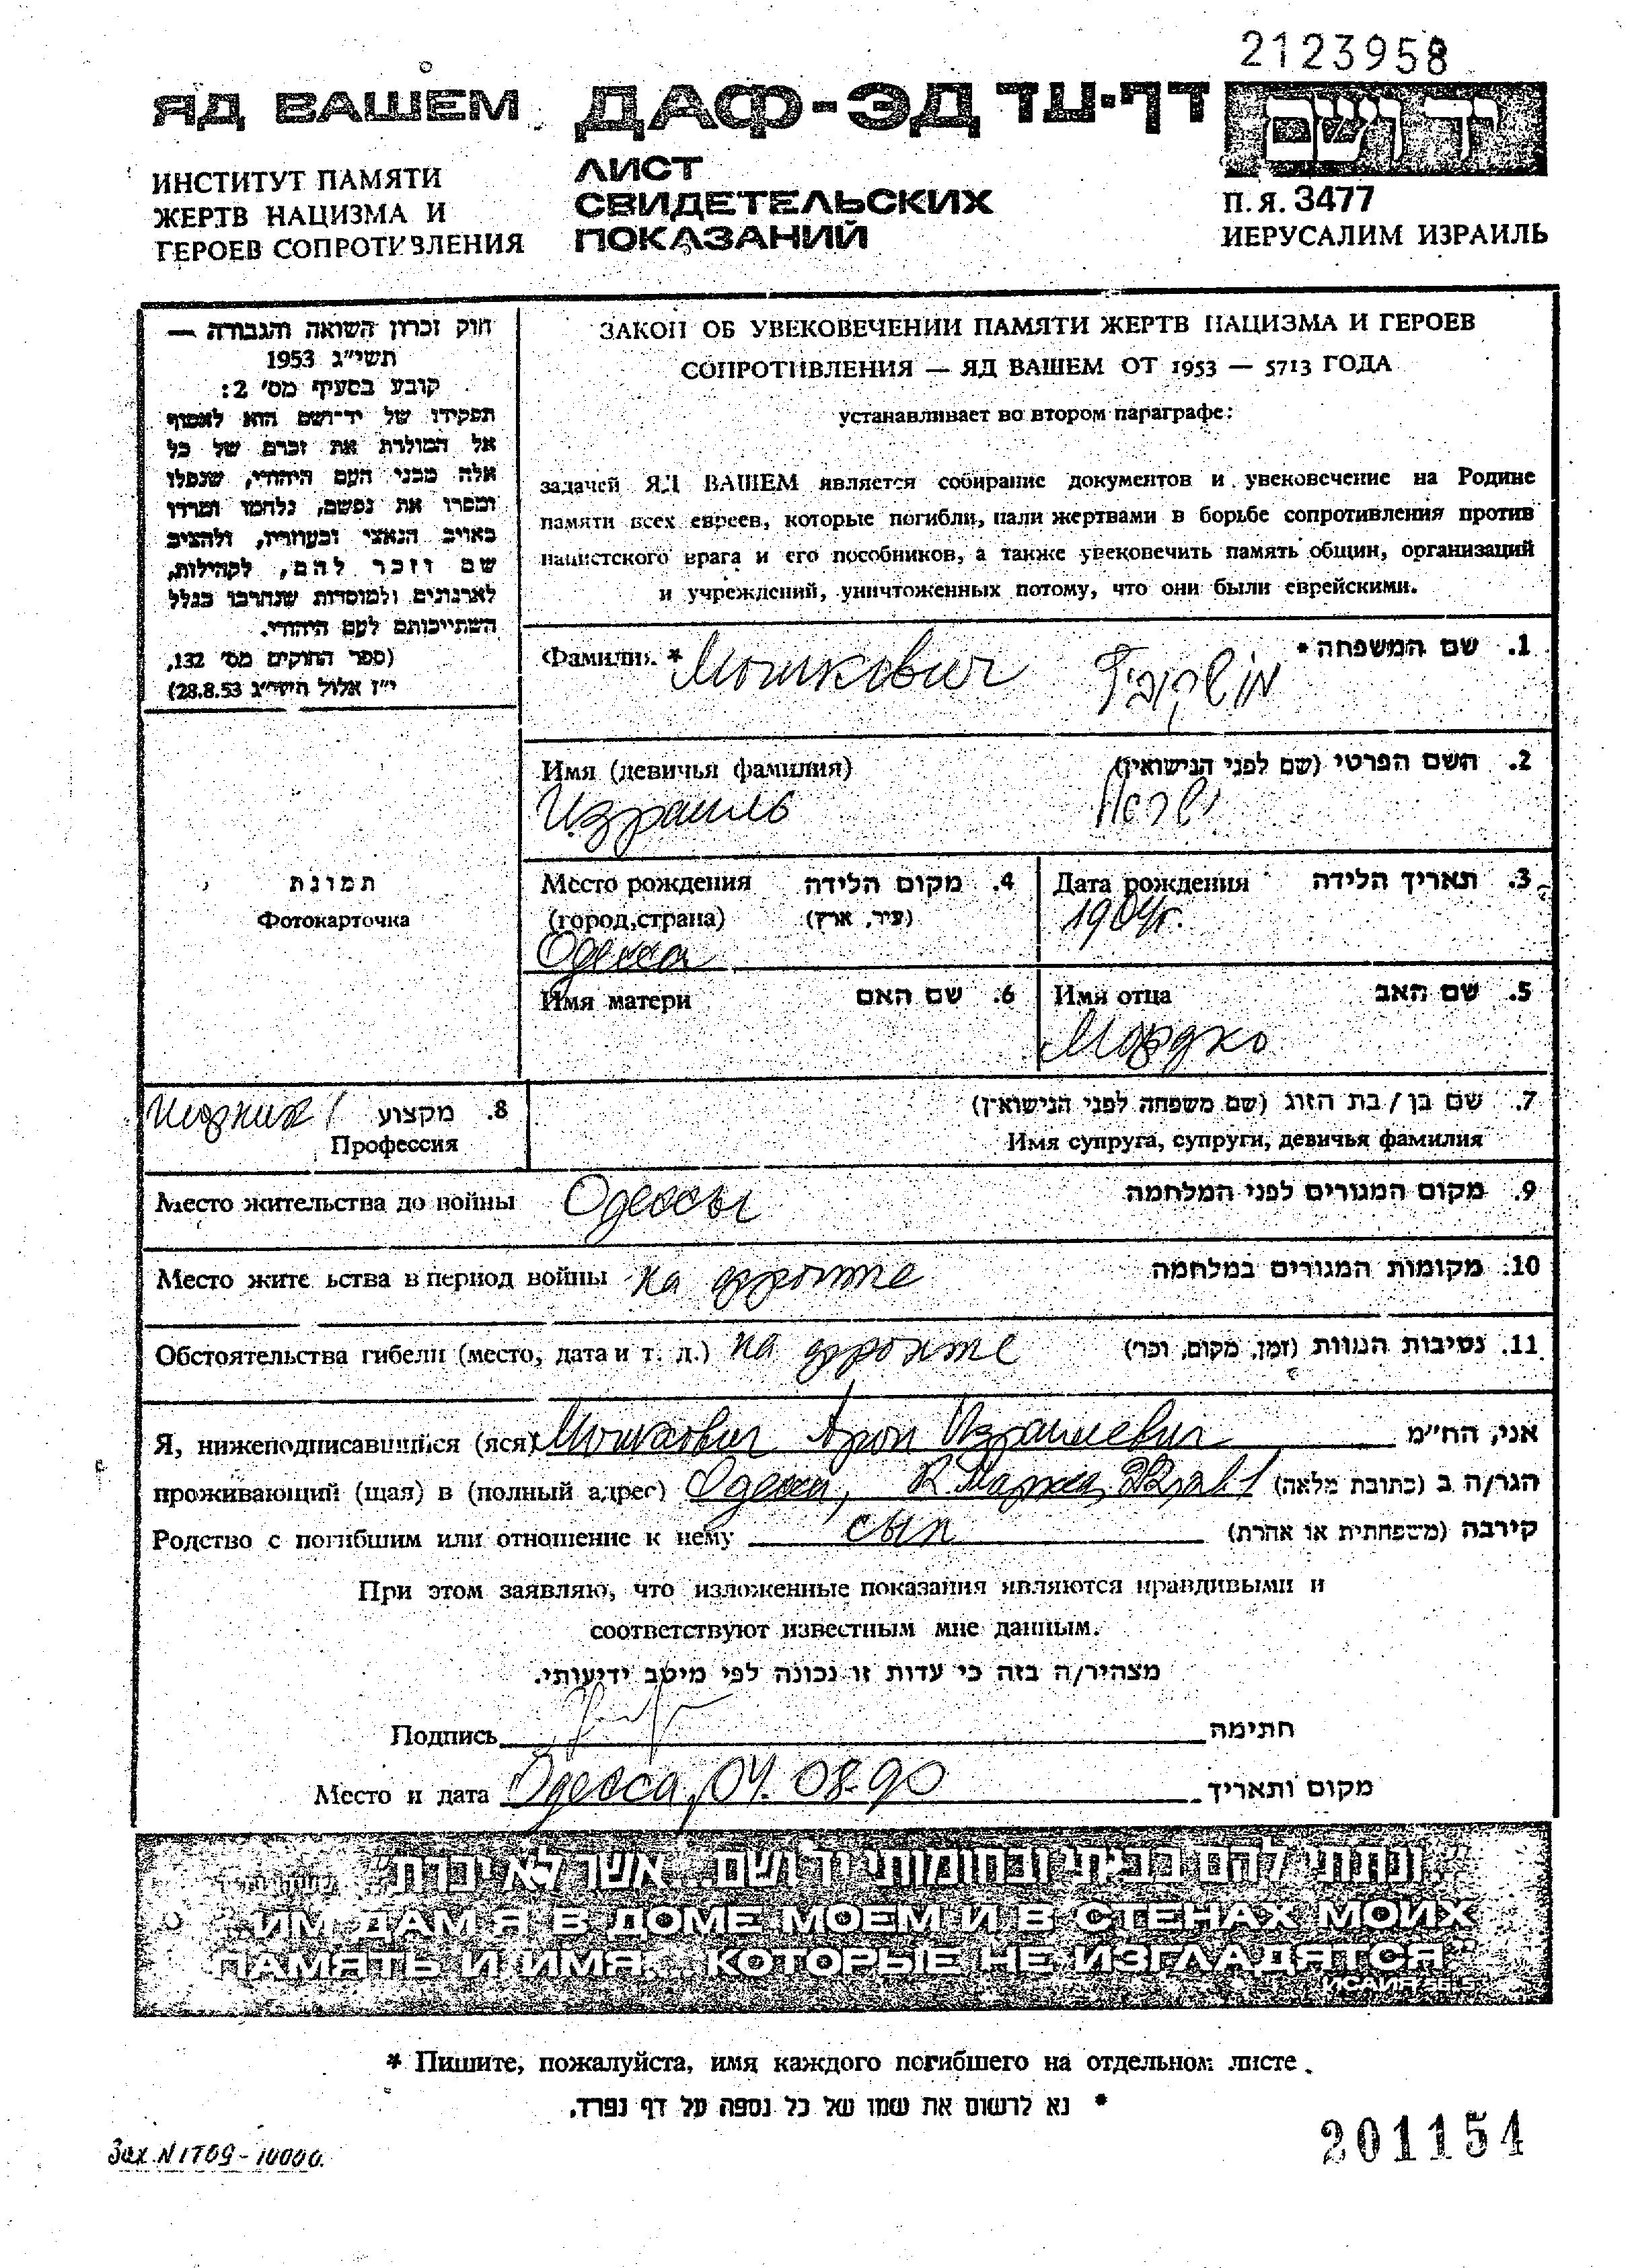 2123958
ЯД ВАШЕМ ДАФ-ЭД דף-עד יד ושם
ИНСТИТУТ ПАМЯТИ
ЖЕРТВ НАЦИЗМА И
ГЕРОЕВ СОПРОТИВЛЕНИЯ
ЛИСТ
СВИДЕТЕЛЬСКИХ
ПОКАЗАНИЙ
П.Я. 3477
ИЕРУСАЛИМ ИЗРАИЛЬ
חוק זכרון השואה והגבורה —
תשי״ג 1953
קובע בסעיף מס׳ 2:
תפקידו של יד־ושם הוא לאסוף
אל המולדת את זכרם של כל
אלה מבני העם היהודי, שנפלו
ומסרו את נפשם, נלחמו ומרדו
באויב הנאצי ובעוזריו, ולהציב
שם וזכר להם, לקהילות,
לארגונים ולמוסדות שנחרבו בגלל
השתייכותם לעם היהודי.
(ספר החוקים מס׳ 132,
י״ז אלול תשי״ג 28.8.53)
ЗАКОН ОБ УВЕКОВЕЧЕНИИ ПАМЯТИ ЖЕРТВ НАЦИЗМА И ГЕРОЕВ
СОПРОТИВЛЕНИЯ — ЯД ВАШЕМ ОТ 1953 — 5713 ГОДА
устанавливает во втором параграфе:
задачей ЯД ВАШЕМ является собирание документов и увековечение на Родине
памяти всех евреев, которые погибли, пали жертвами в борьбе сопротивления против
нацистского врага и его пособников, а также увековечить память общин, организаций
и учреждений, уничтоженных потому, что они были еврейскими.
Фамилия * Мошкович מושקוביץ 1. שם המשפחה *
Имя (девичья фамилия) 2. השם הפרטי (שם לפני הנישואין)
Израиль ישראל
תמונת
Фотокарточка
Место рождения 4. מקום הלידה
(город,страна) (עיר, ארץ)
Одесса
Дата рождения 3. תאריך הלידה
1904г.
Имя матери 6. שם האם
Имя отца 5. שם האב
Мордко
8. מקצוע
Профессия
7. שם בן / בת הזוג (שם משפחה לפני הנישואין)
Имя супруга, супруги, девичья фамилия
Место жительства до войны Одессы 9. מקום המגורים לפני המלחמה
Место жите ьства в период войны на фронте 10. מקומות המגורים במלחמה
Обстоятельства гибели (место, дата и т. д.) на фронте 11. נסיבות המוות (זמן, מקום, וכר׳)
Я, нижеподписавшийся (яся) Мошкович Арон Израилевич אני, הח״מ
проживающий (щая) в (полный адрес) Одесса, К. Маркса הגר/ה ב (כתובת מלאה)
Родство с погибшим или отношение к нему сын קירבה (משפחתית או אחרת)
При этом заявляю, что изложенные показания являются правдивыми и
соответствуют известным мне данным.
מצהיר/ה בזה כי עדות זו נכונה לפי מיטב ידיעותי.
Подпись חתימה
Место и дата Одесса, 04.08.90 מקום ותאריך
"..ונתתי להם בביתי ובחומותי יד ושם... אשר לא יכרת"
"...ИМ ДАМ Я В ДОМЕ МОЕМ И В СТЕНАХ МОИХ
ПАМЯТЬ И ИМЯ... КОТОРЫЕ НЕ ИЗГЛАДЯТСЯ."
ИСАИЯ 56:5
* Пишите, пожалуйста, имя каждого погибшего на отдельном листе.
* נא לרשום את שמו של כל נספה על דף נפרד.
Зак. N 1709-10000.
201154